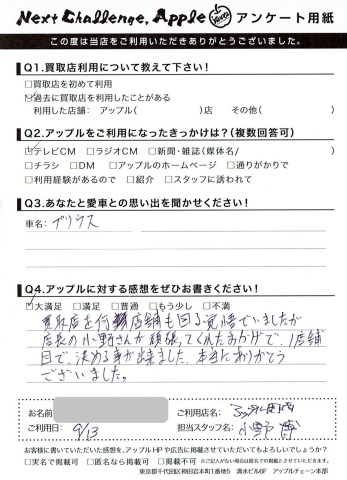 Next Challenge, Apple アンケート用紙
この度は当店をご利用いただきありがとうございました。
Q1.買取店利用について教えて下さい!
□買取店を初めて利用
☑過去に買取店を利用したことがある
利用した店舗: アップル( )店 その他( )
Q2.アップルをご利用になったきっかけは?(複数回答可)
☑テレビCM □ラジオCM □新聞・雑誌(媒体名/ )
□チラシ □DM □アップルのホームページ □通りがかりで
□利用経験があるので □紹介 □スタッフに誘われて
Q3.あなたと愛車との思い出を聞かせください!
車名: プリウス
Q4.アップルに対する感想をぜひお書きください!
☑大満足 □満足 □普通 □もう少し □不満
買取店を何店舗も回る覚悟でいましたが
店長の小野さんが頑張ってくれたおかげで、1店舗
目で決める事が出来ました。本当にありがとう
ございました。
お名前
ご利用店名:
ご利用日: 9/13
担当スタッフ名: 小野
お客様に書いていただいた感想を、アップルHPや広告に掲載させていただいてもよろしいでしょうか?
□実名で掲載可 □匿名なら掲載可 □掲載不可 ※ご記入がない場合は匿名での掲載とさせていただきます。
東京都千代田区神田岩本町1番地5 清水ビル6F アップルチェーン本部